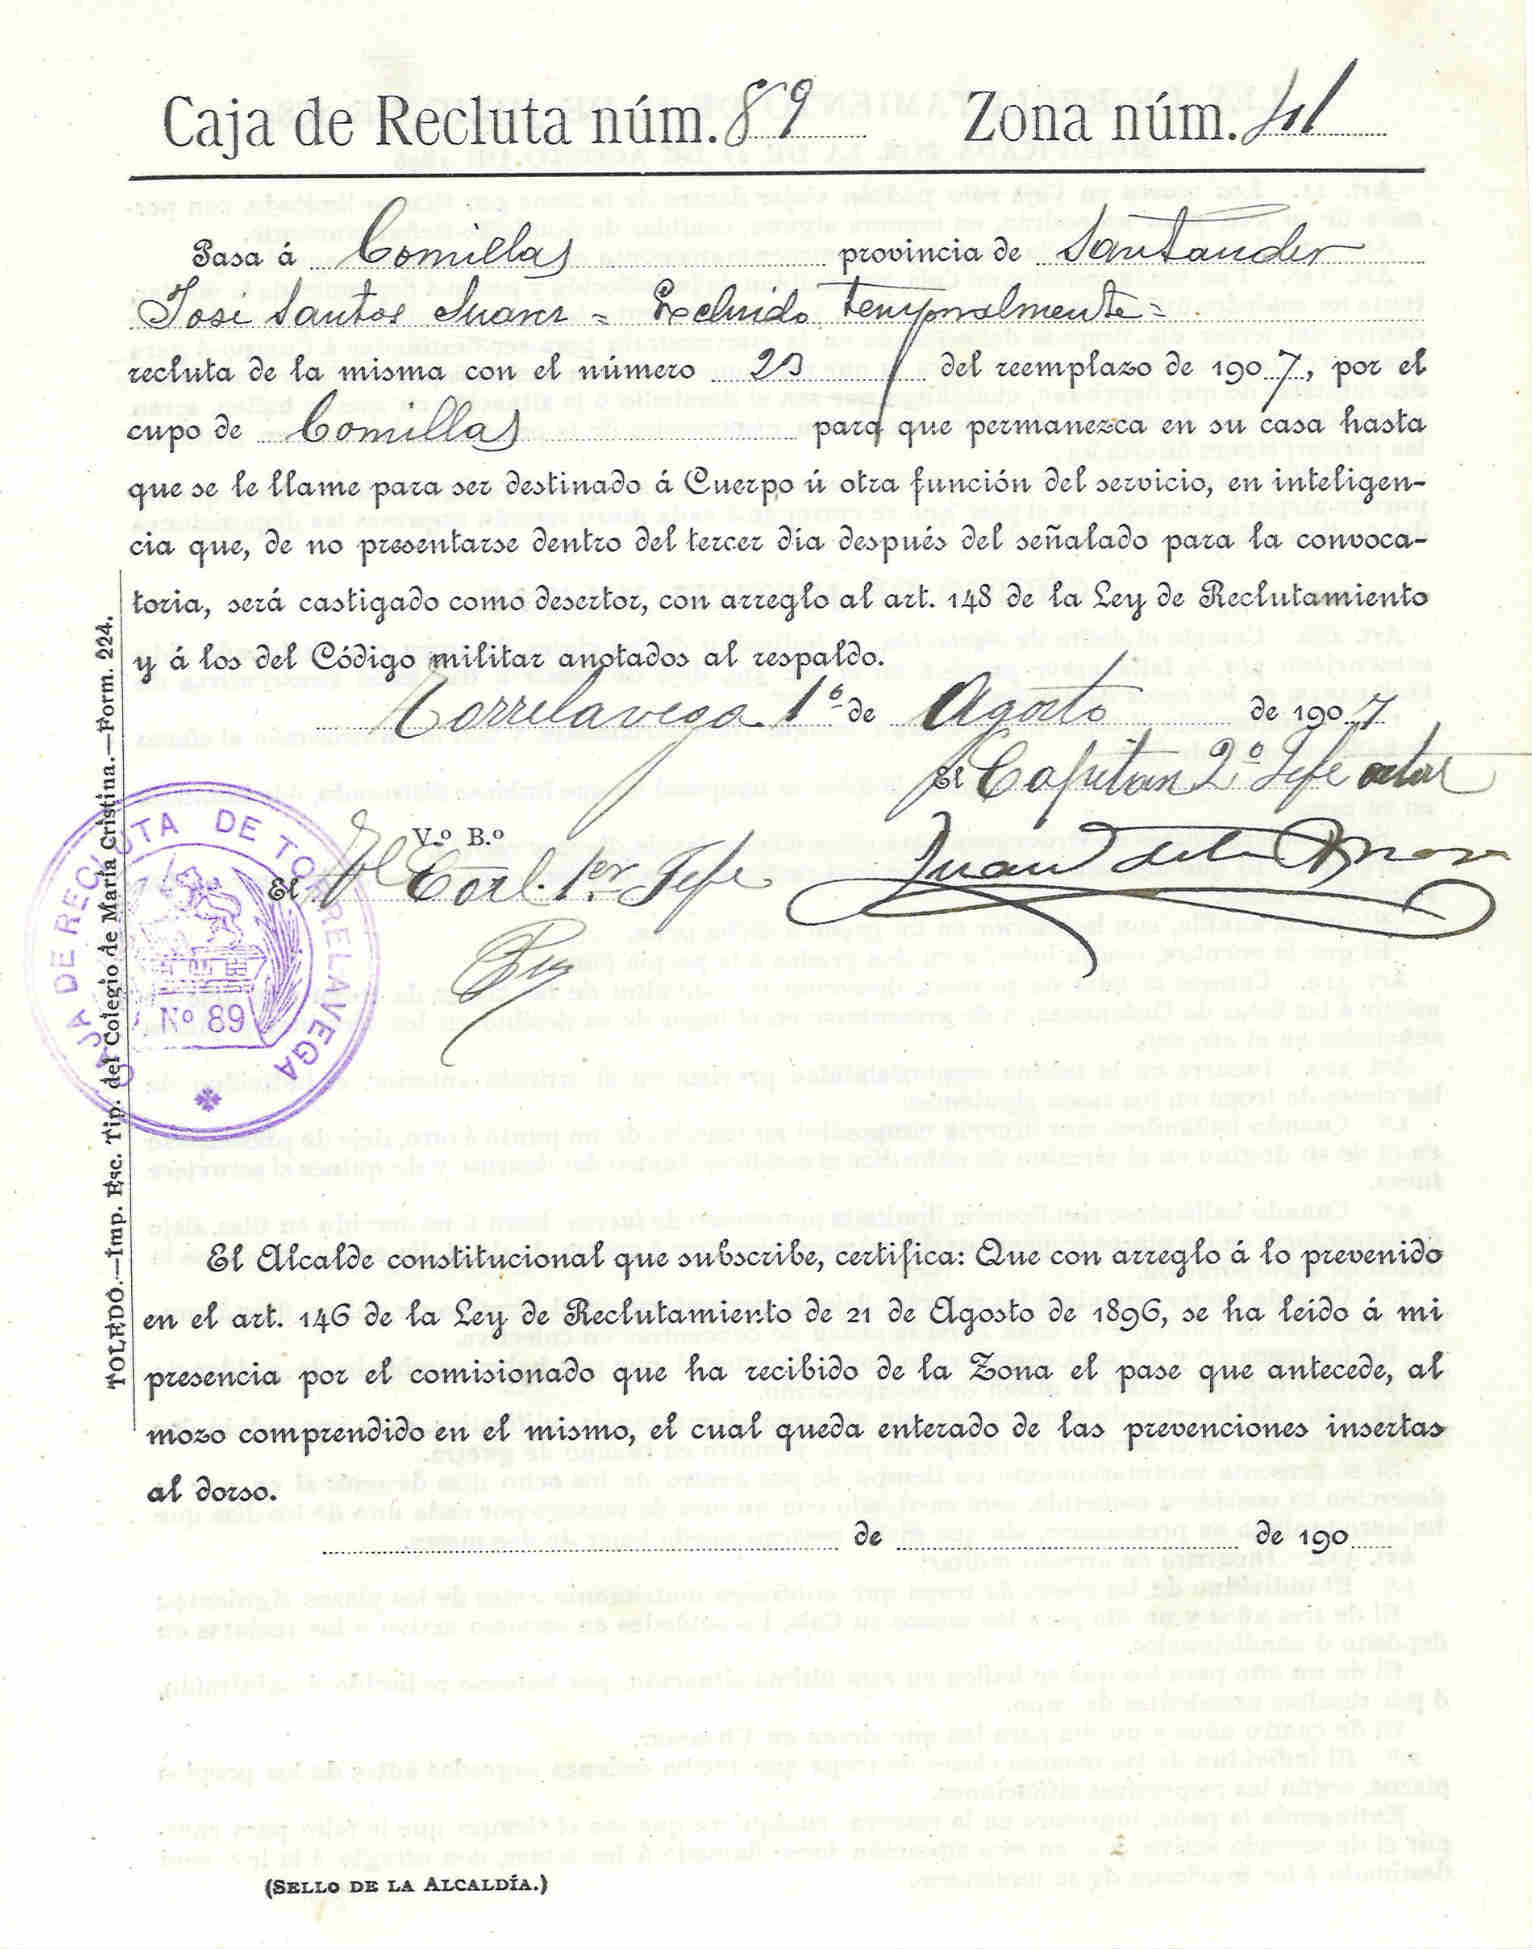 Caja de Recluta núm. 89 Zona núm. 41
Pasa á Comillas provincia de Santander
José Santos Suarez = Excluido Temporalmente =
recluta de la misma con el número 23 del reemplazo de 1907, por el
cupo de Comillas para que permanezca en su casa hasta
que se le llame para ser destinado á Cuerpo ú otra función del servicio, en inteligen-
cia que, de no presentarse dentro del tercer día después del señalado para la convoca-
toria, será castigado como desertor, con arreglo al art. 148 de la Ley de Reclutamiento
y á los del Código militar anotados al respaldo.
Torrelavega 1º de Agosto de 1907
El Capitan 2º Jefe
V.º B.º
El 1er Jefe
Juan de la
CAJA DE RECLUTA DE TORRELAVEGA
Nº 89
TOLEDO.—Imp. Esc. Tip. del Colegio de María Cristina.—Form. 224.
El Alcalde constitucional que subscribe, certifica: Que con arreglo á lo prevenido
en el art. 146 de la Ley de Reclutamiento de 21 de Agosto de 1896, se ha leído á mi
presencia por el comisionado que ha recibido de la Zona el pase que antecede, al
mozo comprendido en el mismo, el cual queda enterado de las prevenciones insertas
al dorso.
de de 190
(SELLO DE LA ALCALDÍA.)